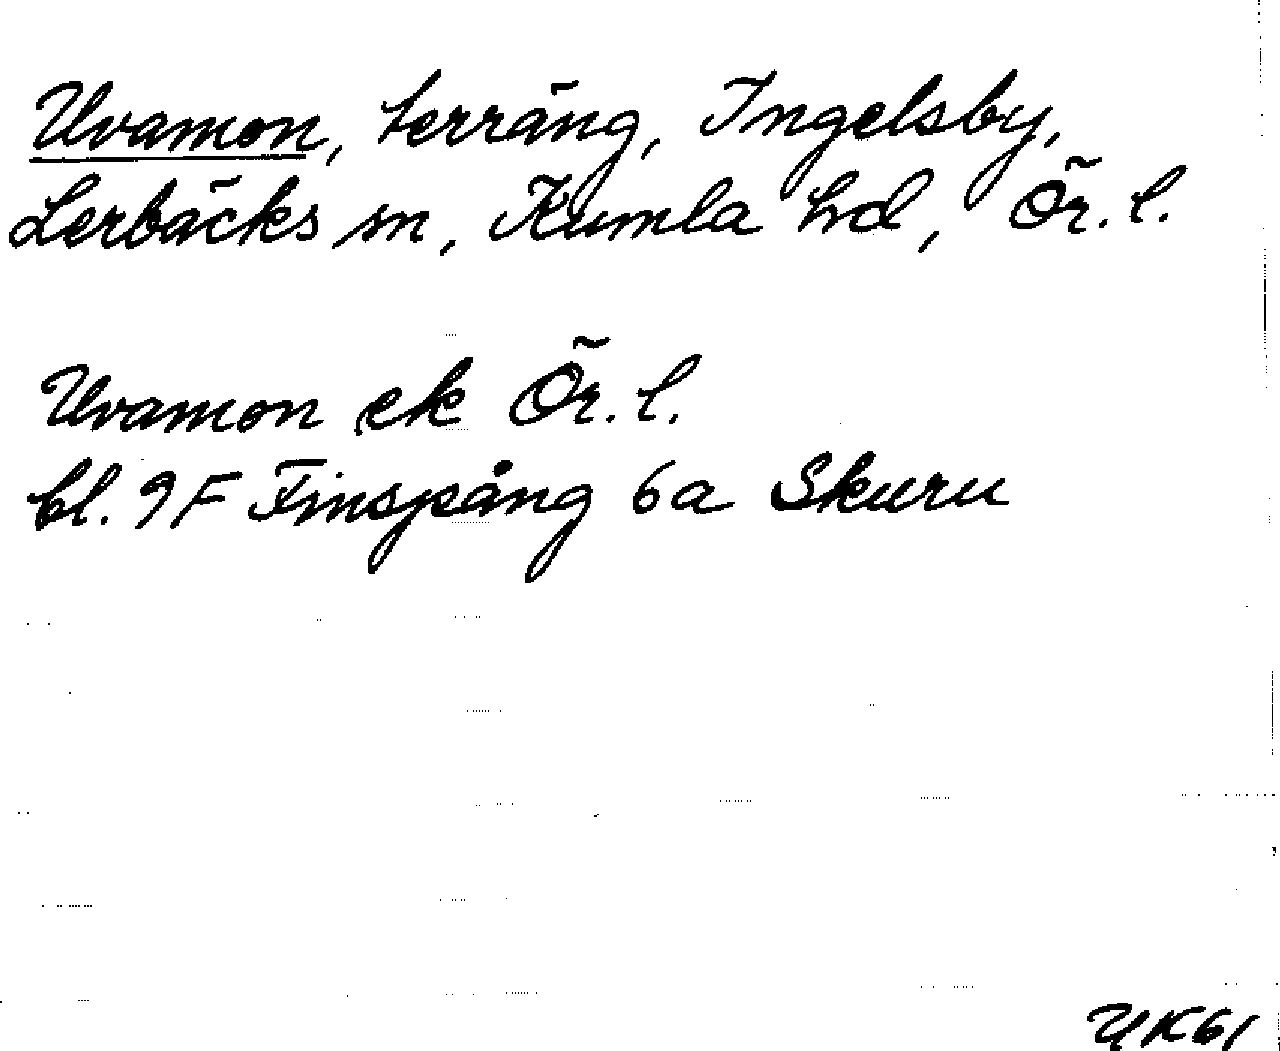 Uvamon, terräng, Ingelsby,
Lerbäcks sn, Kumla hd, Ör. l.
Uvamon ek Ör. l.
bl. 9F Finspång 6a Skuru
UK61